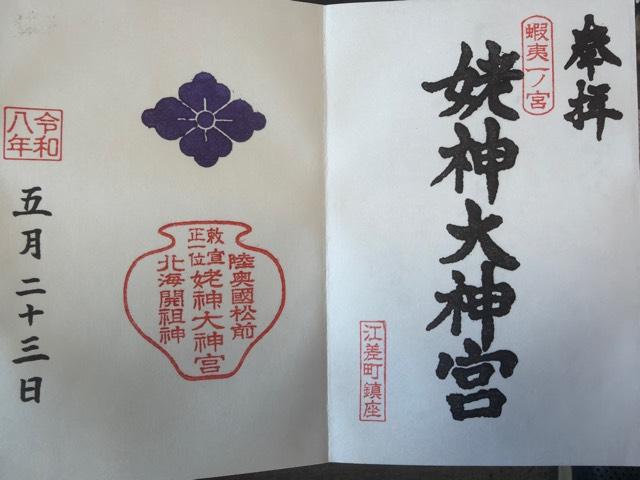 奉拝
蝦夷一ノ宮
姥神大神宮
江差町鎮座
陸奥國松前
敕宣
正一位
姥神大神宮
北海開祖神
令和
八年
五月二十三日